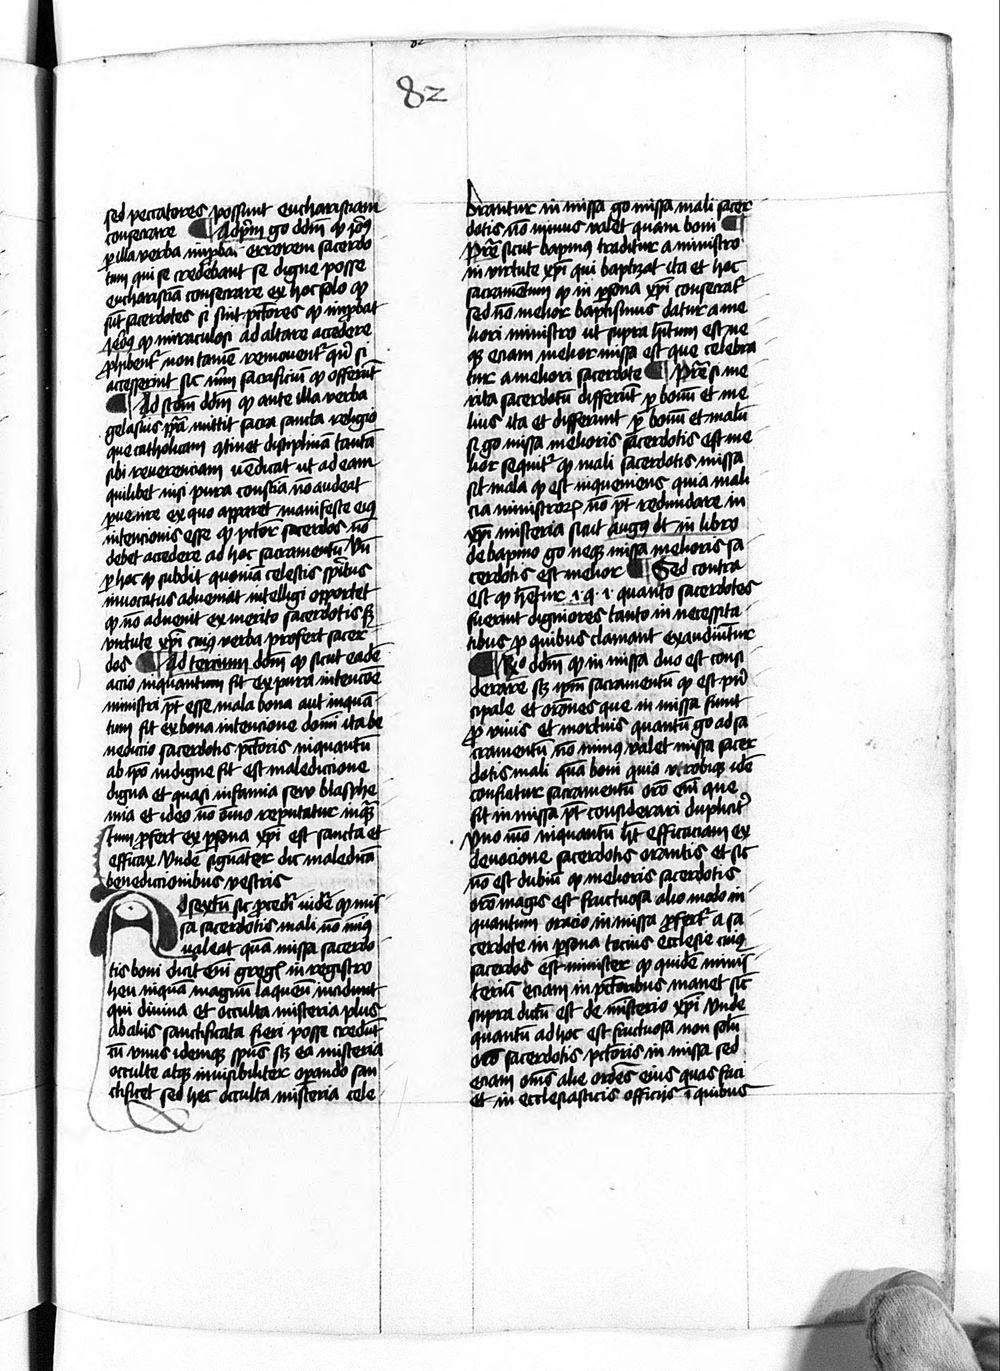 82
sed peccatores possunt eucharistiam
consecrare ¶ Ad pm̄ g̊ dd̄m ꝙ Jeroꝰ
ꝑ illa verba improbat errorem sacerdo
tum qui se credebant se digne posse
eucharistiā consecrare ex hoc solo ꝙ
sūt sacerdotes si sint pctōres ꝙ improbat
Jeroꝰ ꝙ miraculosi ad altare accedere
ꝓhibent᷑ non tamē removent᷑ quī si
accesserint sic verum sacrificiū ꝙ offerūt
¶ Ad scdm̄ dd̄m ꝙ ante illa verba
gelasius pp̄a mittit sacra sancta religio
que catholicam ꝯtinet disciplinā tantā
sibi reverenciam vēdicat ut ad eam
quilibet nisi pura consciā nō audeat
ꝑvenire ex quo apparet manifeste eiꝰ
intencionis esse ꝙ pctōr sacerdos nō
debet accedere ad hoc sacramentū Vn̄
ꝑ hoc ꝙ subdit quoniā celestis sp̄ritus
invocatus adveniat intelligi opportet
ꝙ nō advenit ex merito sacerdotis sꝫ
virtute xp̄i cuiꝰ verba profert sacer
dos ¶ Ad tercium dd̄m ꝙ sicut eadē
actio inquantum fit ex prava intencōē
ministri pt̄ esse mala bona aut inquā
tum fit ex bona intencione domī ita be
nedictio sacerdotis pctōris inquantū
ab ip̄o indigne fit est malediccione
digna et quasi infamia seu blasphe
mia et ideo nō oīno reputatur inquā
tum ꝓfert᷑ ex ꝑsona xp̄i est sancta et
efficax Unde signāter dic̄ maledicā
benedictionibus vestris
Ad sextū sic ꝓcedit᷑ videt᷑ ꝙ mis
sa sacerdotis mali nō minꝰ
valeat quā missa sacerdo
tis boni dicit enī gregꝰ in registro
heu inquā magnū laqueū incidunt
qui divina et occulta misteria plus
ab aliis sanctificata fieri posse credūt
cū vnus idemqꝫ spūs sꝫ ea misteria
occulte atqꝫ invisibiliter oꝑando san
ctificet sed hec occulta misteria cele
brantur in missa go missa mali sacer
dotis nō minus valet quam boni ¶
Pret̄ sicut baptimꝰ traditur a ministro
in virtute xp̄i qui baptizat ita et hoc
sacramētum ꝙ in ꝑsona xp̄i consecrat᷑
sed nō melior baptismus datur a me
liori ministro ut supra hītum est ne
qꝫ eciam melior missa est que celebra
tur a meliori sacerdote ¶ Pret̄ si me
rita sacerdotū differūt ꝑ bonū et me
lius ita et differunt ꝑ bonū et malū
si go missa melioris sacerdotis est me
lior sequit᷑ ꝙ mali sacerdotis missa
sit mala ꝙ est inqueniens quia mali
cia ministroꝝ nō pt̄ redundare in
xp̄i misteria sicut augꝰ dt̄ in libro
de baptimo go neqꝫ missa melioris sa
cerdotis est melior ¶ Sed contra
est ꝙ hētur .i. q. i. quanto sacerdotes
fuerint digniores tanto in necessita
tibus ꝓ quibus clamant exaudiūtur
¶ Rᵒ dd̄m ꝙ in missa duo est consi
derare scꝫ ip̄m sacramentū ꝙ est prī
cipale et orōnes que in missa fiunt
ꝓ vivis et mortuis quantū go ad sa
cramentū nō minꝰ valet missa sacer
dotis mali quā boni quia vtrobiqꝫ idē
conficitur sacramentū orō enī que
fit in missa pt̄ considerari dupliciter
Vno mō inquantū ht̄ efficaciam ex
devocione sacerdotis orantis et sic
nō est dubiū ꝙ melioris sacerdotis
orō magis est fructuosa alio modo in
quantum oracio in missa ꝓfert᷑ a sa
cerdote in ꝑsona tocius ecclesie cuiꝰ
sacerdos est minister ꝙ quidē minis
teriū eciam in pctōribus manet sic̄
supra dictū est de misterio xp̄i Unde
quantū ad hoc est fructuosa non solū
orō sacerdotis pctōris in missa sed
eciam om̄s alie orōes eius quas faci
et in ecclesiasticis officiis ī quibus